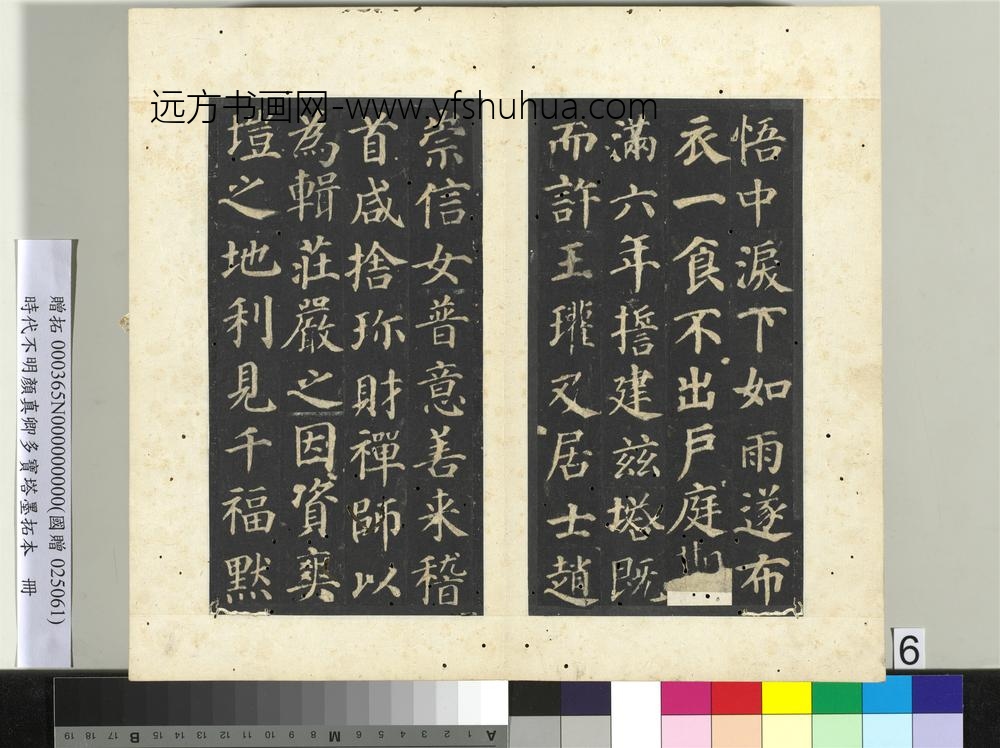 远方书画网-www.yfshuhua.com
悟中淚下如雨遂布
衣一食不出戶庭
滿六年誓建茲塔既
而許王瓘又居士趙
崇信女普意善来稽
首咸捨珎財禪師以
為輯莊嚴之因資爽
塏之地利見千福默
贈拓 000365N000000000(國贈 025061)
時代不明顏真卿多寶塔墨拓本 冊
6
A 1 2 3 4 5 6 M 8 9 10 11 12 13 14 15 B 17 18 19